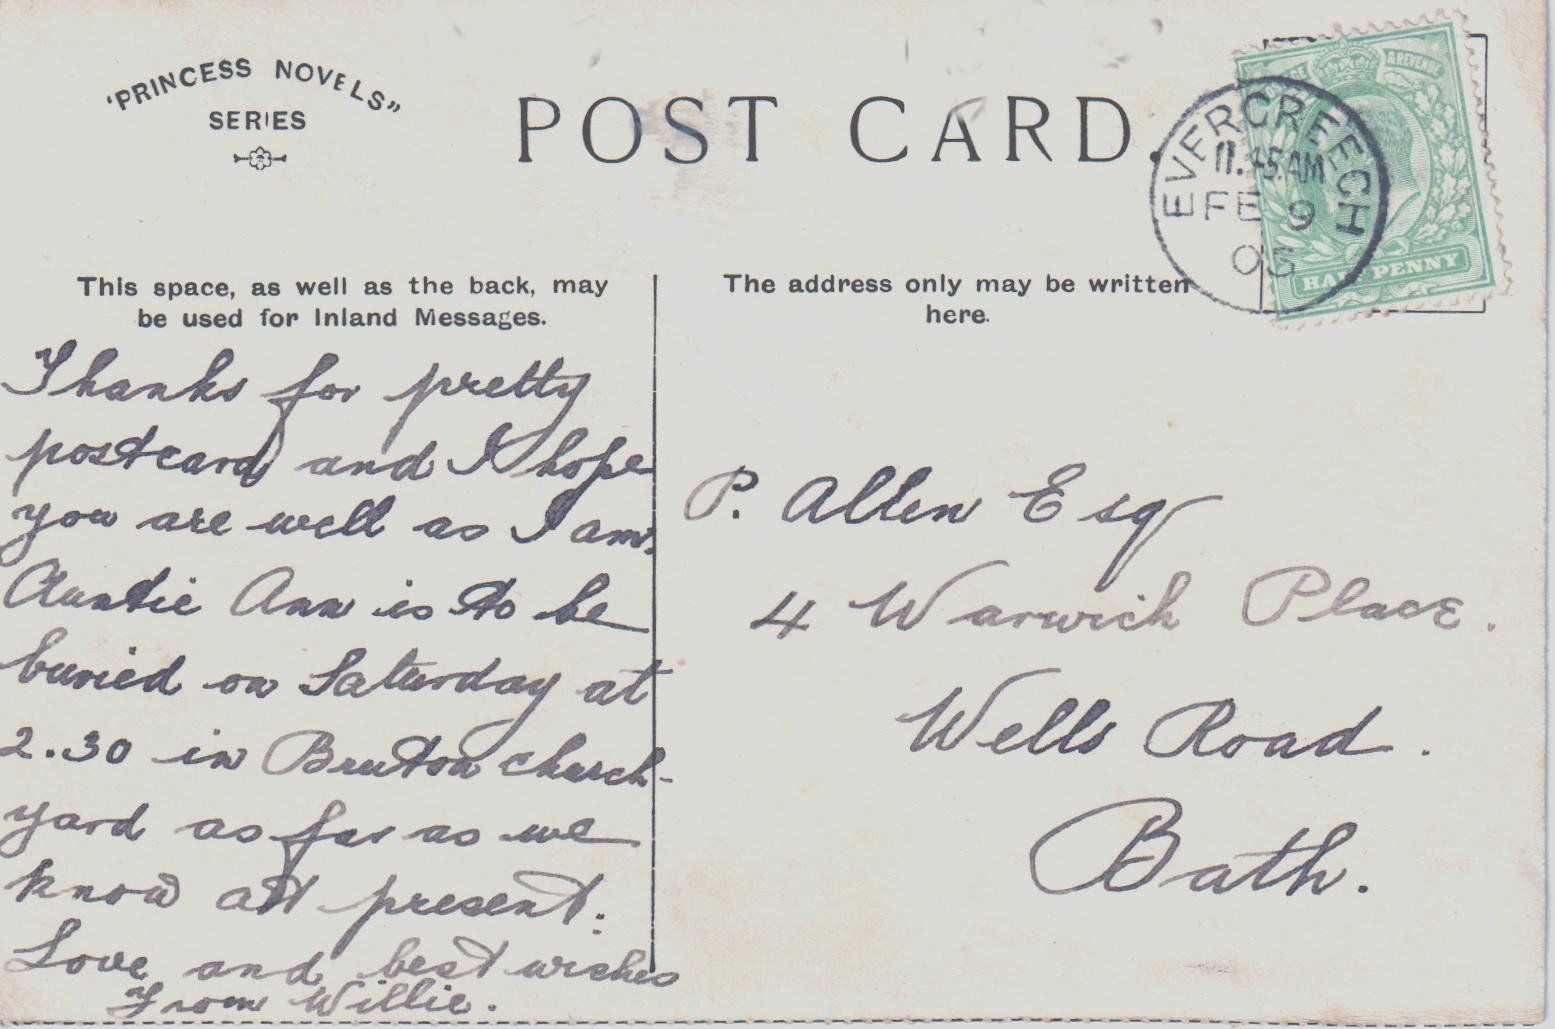 'PRINCESS NOVELS"
SERIES
POST CARD.
& REVENUE
HALF PENNY
EVERCREECH
11.45 AM
FE 9
05
This space, as well as the back, may
be used for Inland Messages.
The address only may be written
here.
Thanks for pretty
postcard and I hope
you are well as I am.
Auntie Ann is to be
buried on Saturday at
2.30 in Bruton church-
yard as far as we
know at present.
Love and best wishes
From Willie.
P. Allen Esq
4 Warwick Place.
Wells Road.
Bath.